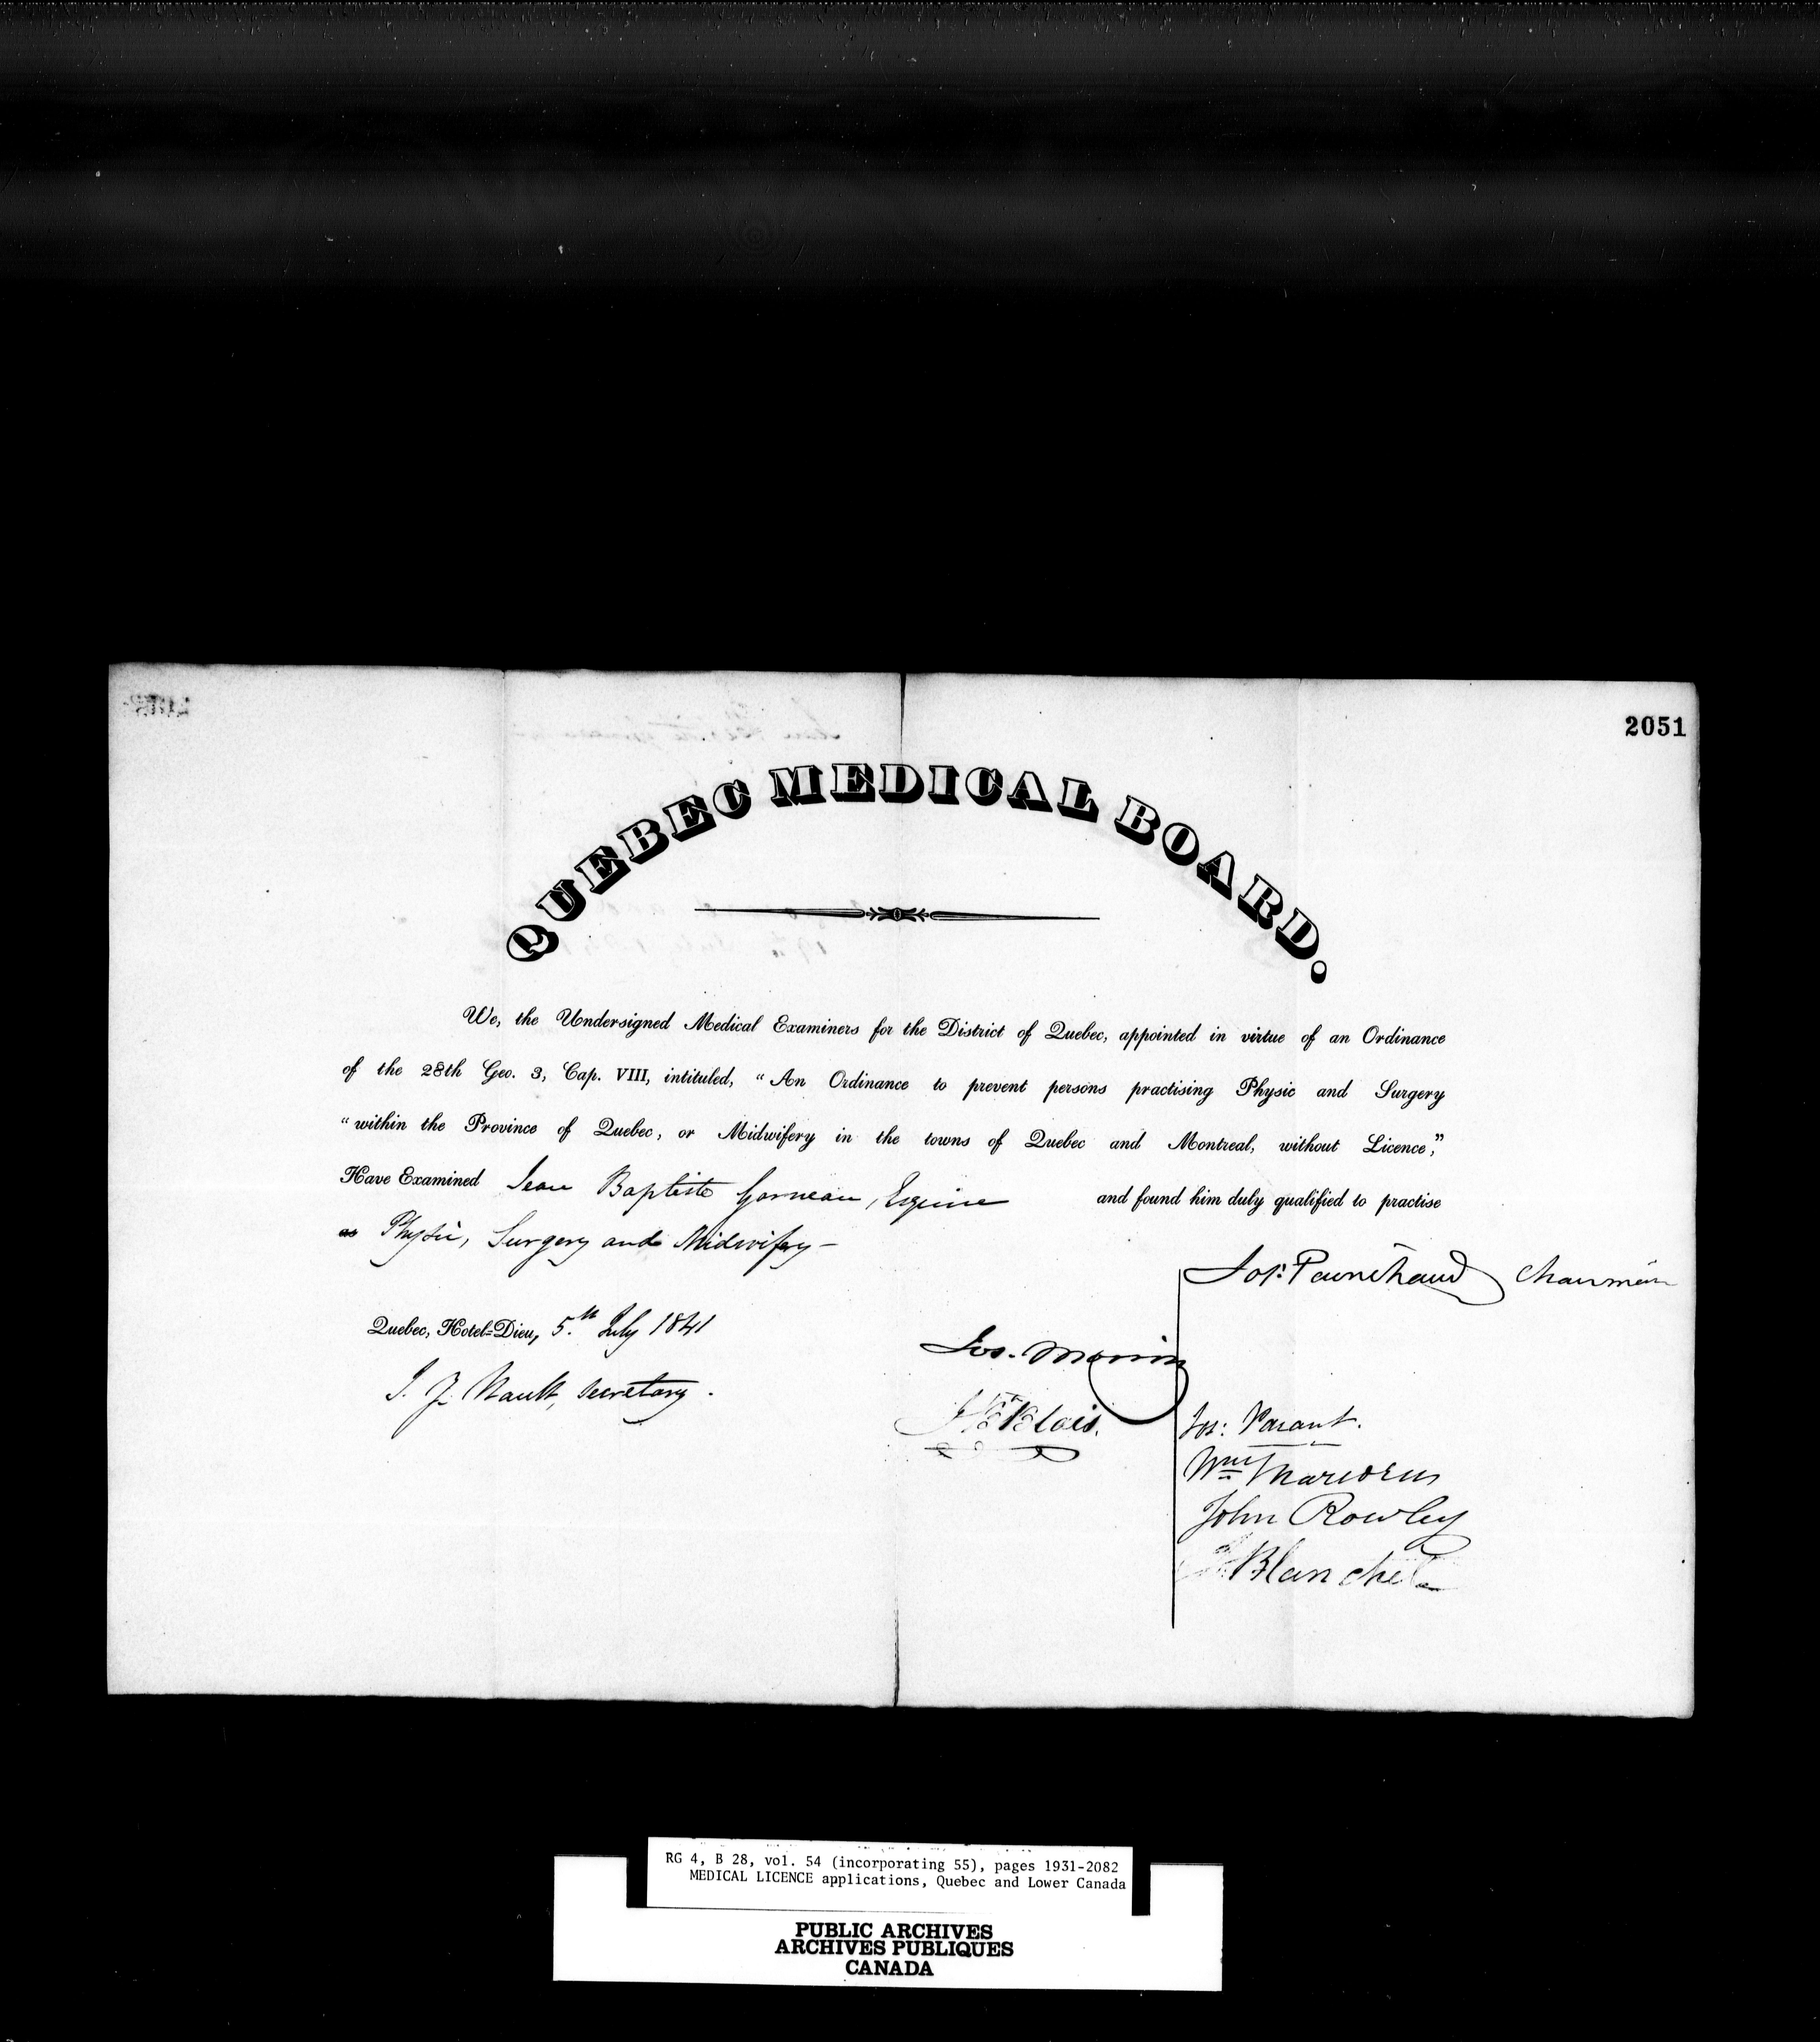 2051
QUEBEC MEDICAL BOARD.
We, the Undersigned Medical Examiners for the District of Quebec, appointed in virtue of an Ordinance
of the 28th Geo. 3, Cap. VIII, intituled, "An Ordinance to prevent persons practising Physic and Surgery
"within the Province of Quebec, or Midwifery in the towns of Quebec and Montreal, without Licence,"
Have Examined Jean Baptiste Garneau, Esquire and found him duly qualified to practise
as Physic, Surgery and Midwifery —
Jos: Painchaud Chairman
Quebec, Hotel-Dieu, 5.th July 1841
Jos. Morrin
J. Z. Nault, Secretary.
Blais.
Jos: Parant.
Wm Marsden
John Rowley
Blanchet
RG 4, B 28, vol. 54 (incorporating 55), pages 1931-2082
MEDICAL LICENCE applications, Quebec and Lower Canada
PUBLIC ARCHIVES
ARCHIVES PUBLIQUES
CANADA